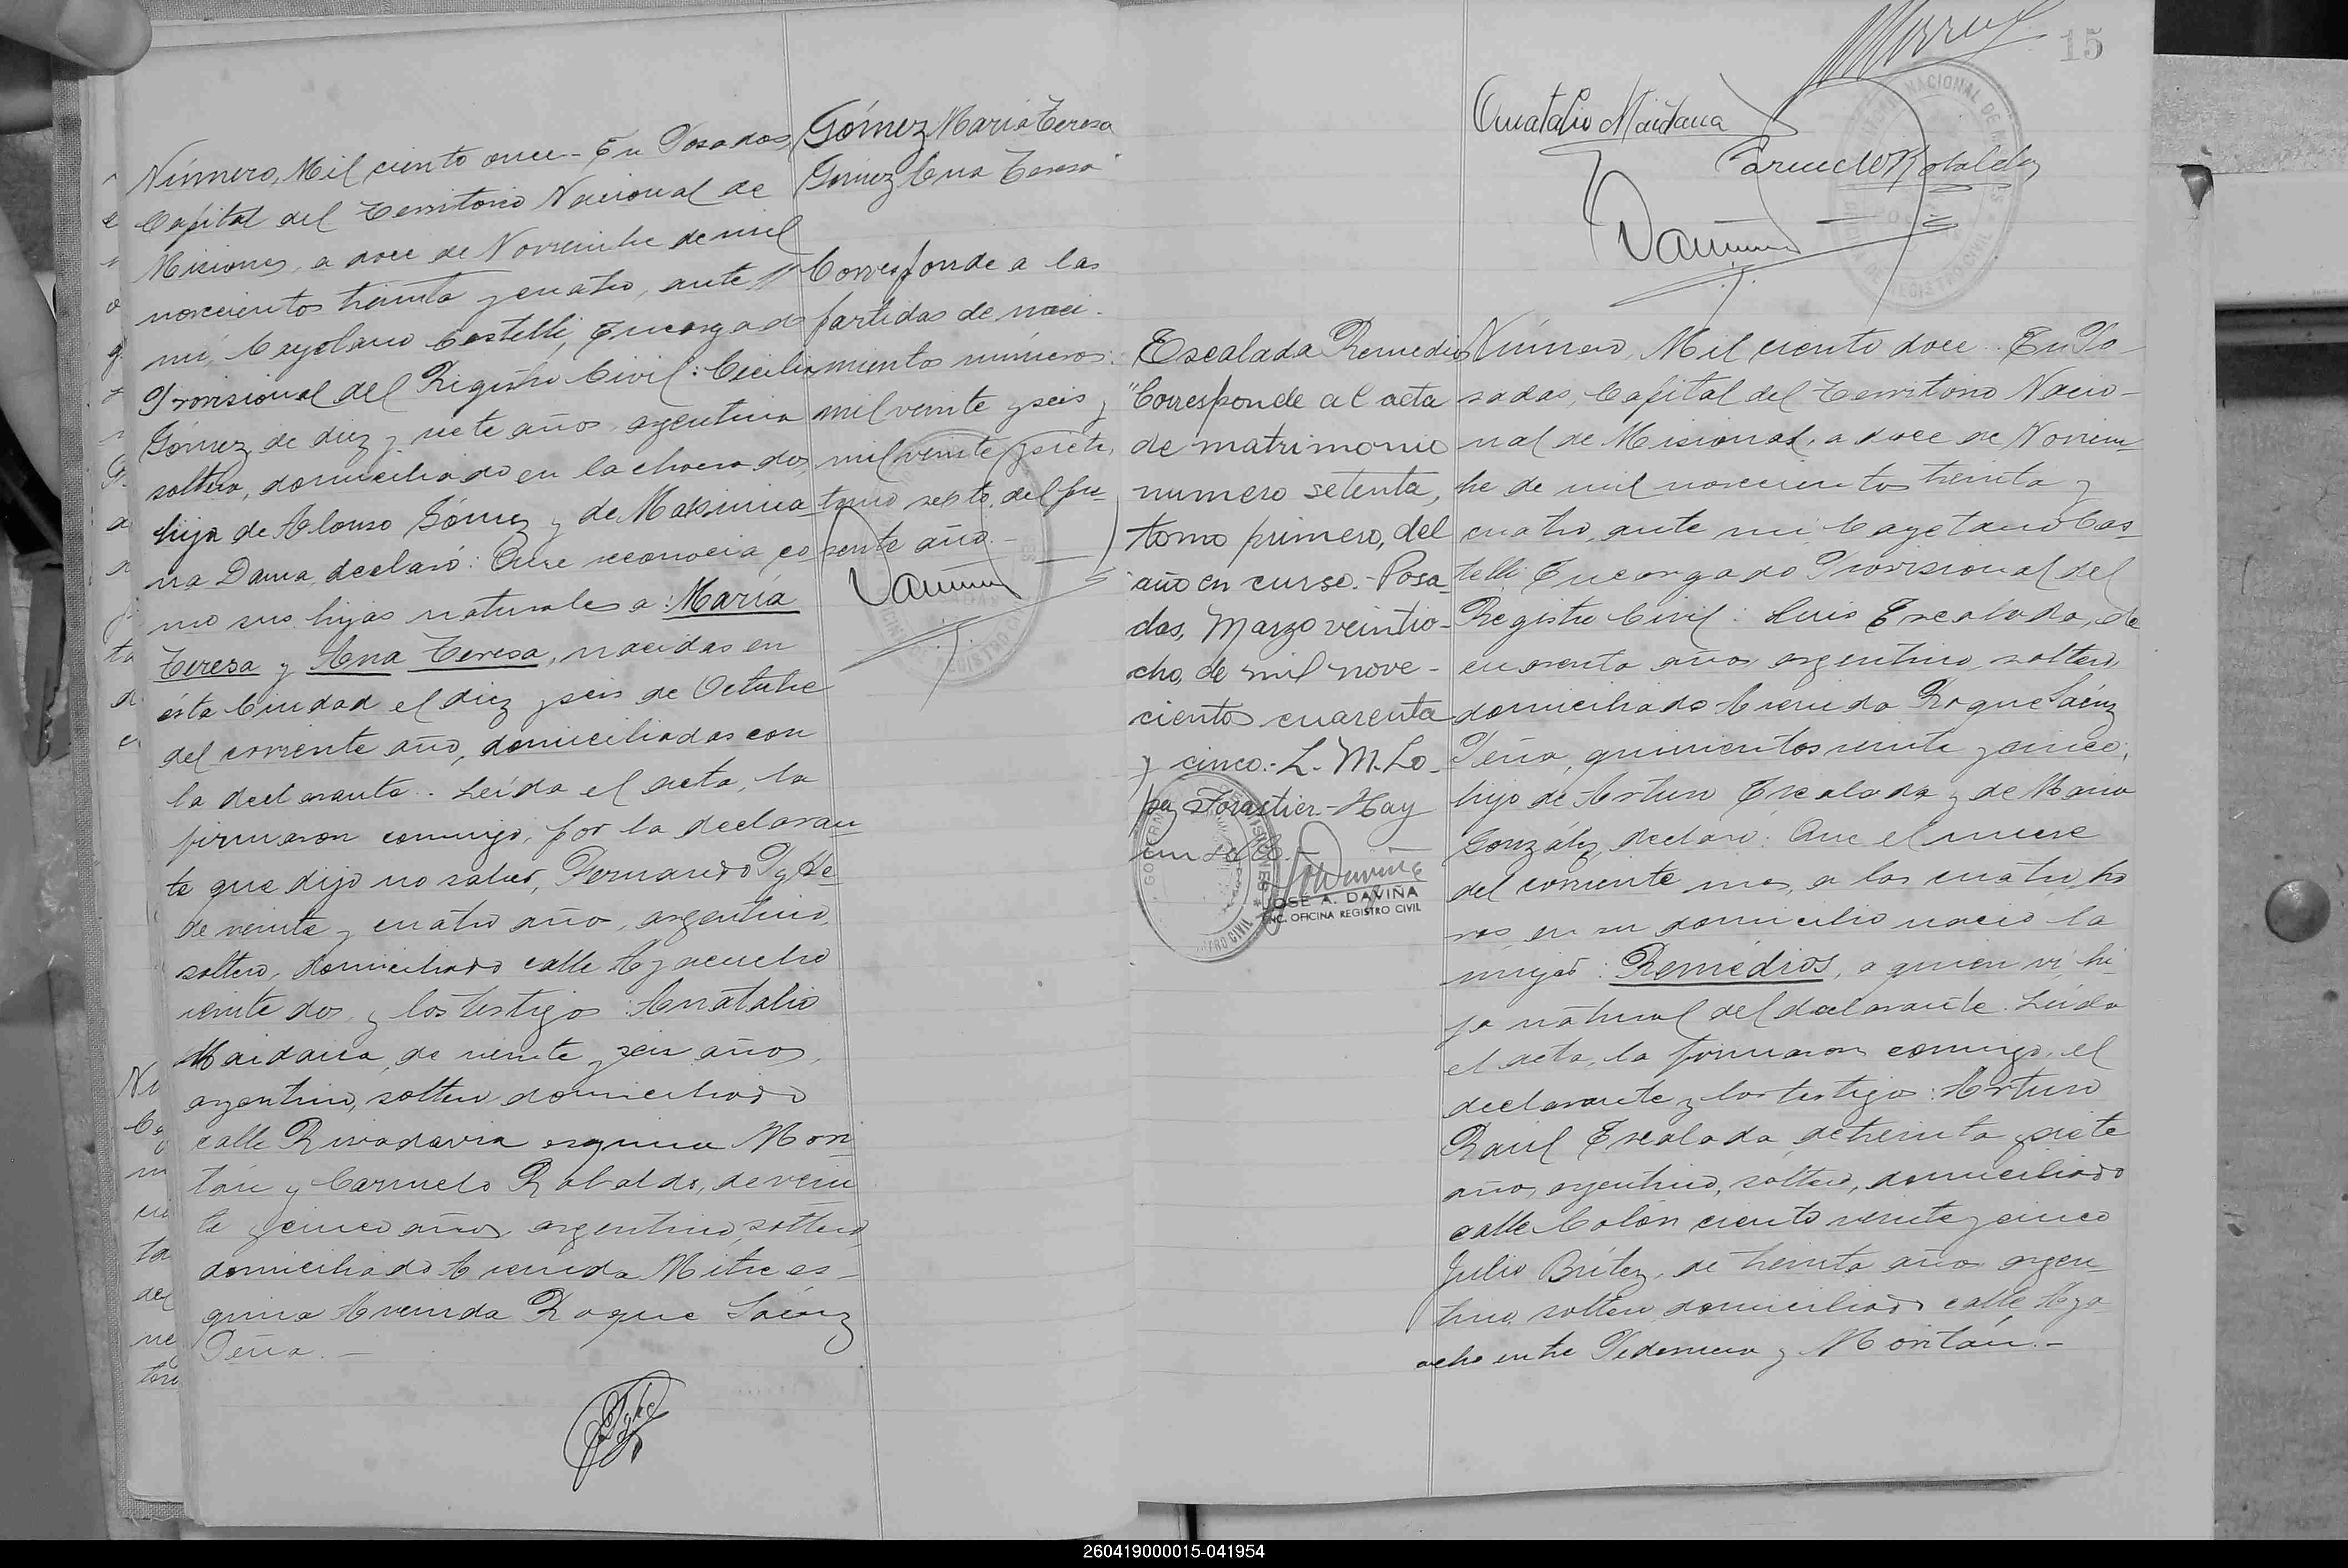 Número, Mil ciento once - En Posadas,
Capital del Territorio Nacional de
Misiones, a doce de Noviembre de mil
novecientos treinta y cuatro, ante
mí, Cayetano Castelli, Encargado
Provisional del Registro Civil: Cecilia
Gómez, de diez y siete años, argentina
soltera, domiciliada en la chacra dos,
hija de Alonso Gómez y de Maximia-
na Dama, declaró: Que reconocía co
mo sus hijas naturales a: María
Teresa y Ana Teresa, nacidas en
ésta Ciudad el diez y seis de Octubre
del corriente año, domiciliadas con
la declarante. Leída el acta, la
firmaron conmigo, por la declaran
te que dijo no saber, Fernando
de veinte y cuatro años, argentino,
soltero, domiciliado calle Ayacucho
veinte dos, y los testigos: Anatalio
Maidana, de veinte y seis años,
argentino, soltero domiciliado
calle Rivadavia esquina Mon
tán y Carmelo Robaldo, de vein
te y cinco años, argentino, soltero,
domiciliado Avenida Mitre es-
quina Avenida Roque Sáenz
Peña. -
Gómez María Teresa
Gómez Ana Teresa
Corresponde a las
partidas de naci-
mientos números:
mil veinte y seis y
mil veinte y siete,
tomo sexto, del pre-
sente año. -
15
Anatalio Maidana
Carmelo Robaldo
Escalada Remedios
"Corresponde al acta
de matrimonio
numero setenta,
tomo primero, del
año en curso. - Posa-
das, Marzo veintio-
cho, de mil nove-
cientos cuarenta
y cinco. - L. M. Lo-
pez Forastier - Hay
un sello. -
JOSE A. DAVIÑA
ENC. OFICINA REGISTRO CIVIL
Número, Mil ciento doce. En Po-
sadas, Capital del Territorio Nacio-
nal de Misiones, a doce de Noviem-
bre de mil novecientos treinta y
cuatro, ante mí, Cayetano Cas-
telli, Encargado Provisional del
Registro Civil: Luis Escalada, de
cuarenta años, argentino, soltero,
domiciliado Avenida Roque Sáenz
Peña, quinientos veinte y cinco,
hijo de Arturo Escalada y de María
González, declaró: Que el nueve
del corriente mes, a las cuatro ho
ras, en su domicilio nació la
mujer: Remedios, a quien ví, hi-
ja natural del declarante. Leída
el acta, la firmaron conmigo, el
declarante y los testigos: Arturo
Raúl Escalada, de treinta y siete
años, argentino, soltero, domiciliado
calle Colón ciento veinte y cinco
Julio Brítez, de treinta años, argen-
tino, soltero domiciliado calle Aya
cucho entre Pedernera y Montán. -
260419000015-041954